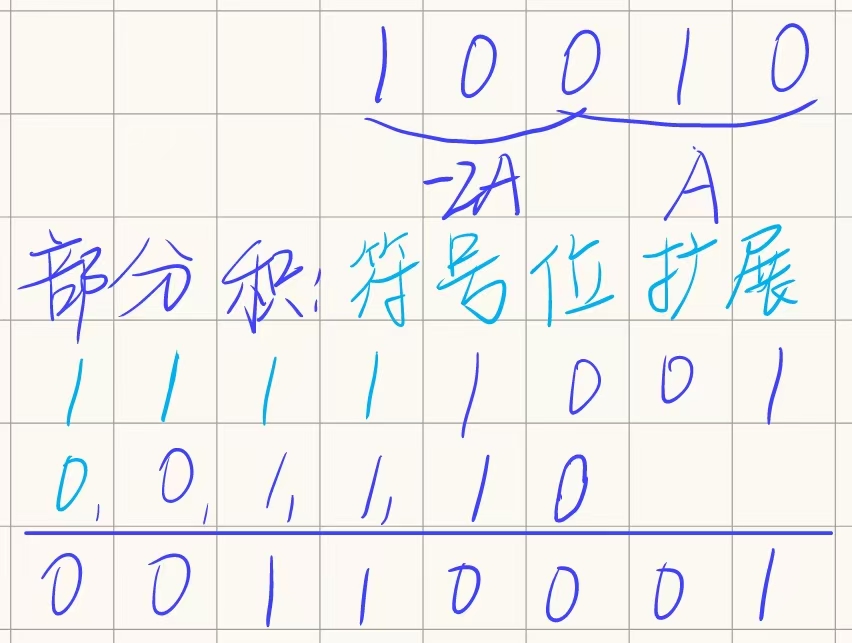 1 0 0 1 0
-2A A
部分积: 符号位扩展
1 1 1 1 1 0 0 1
0, 0, 1, 1, 1 0
0 0 1 1 0 0 0 1